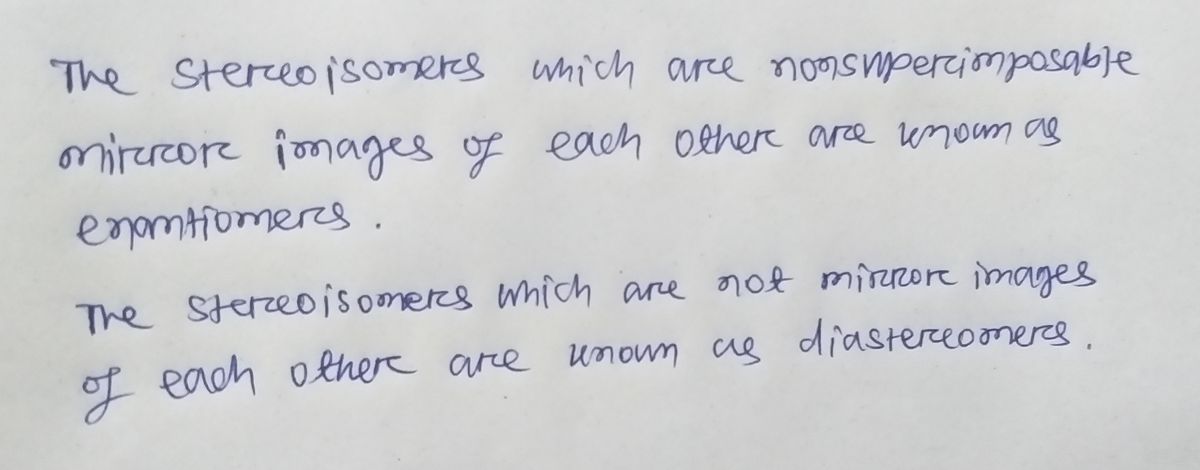 The stereoisomers which are nonsuperimposable
mirror images of each other are known as
enantiomers.
The stereoisomers which are not mirror images
of each other are known as diastereomers.